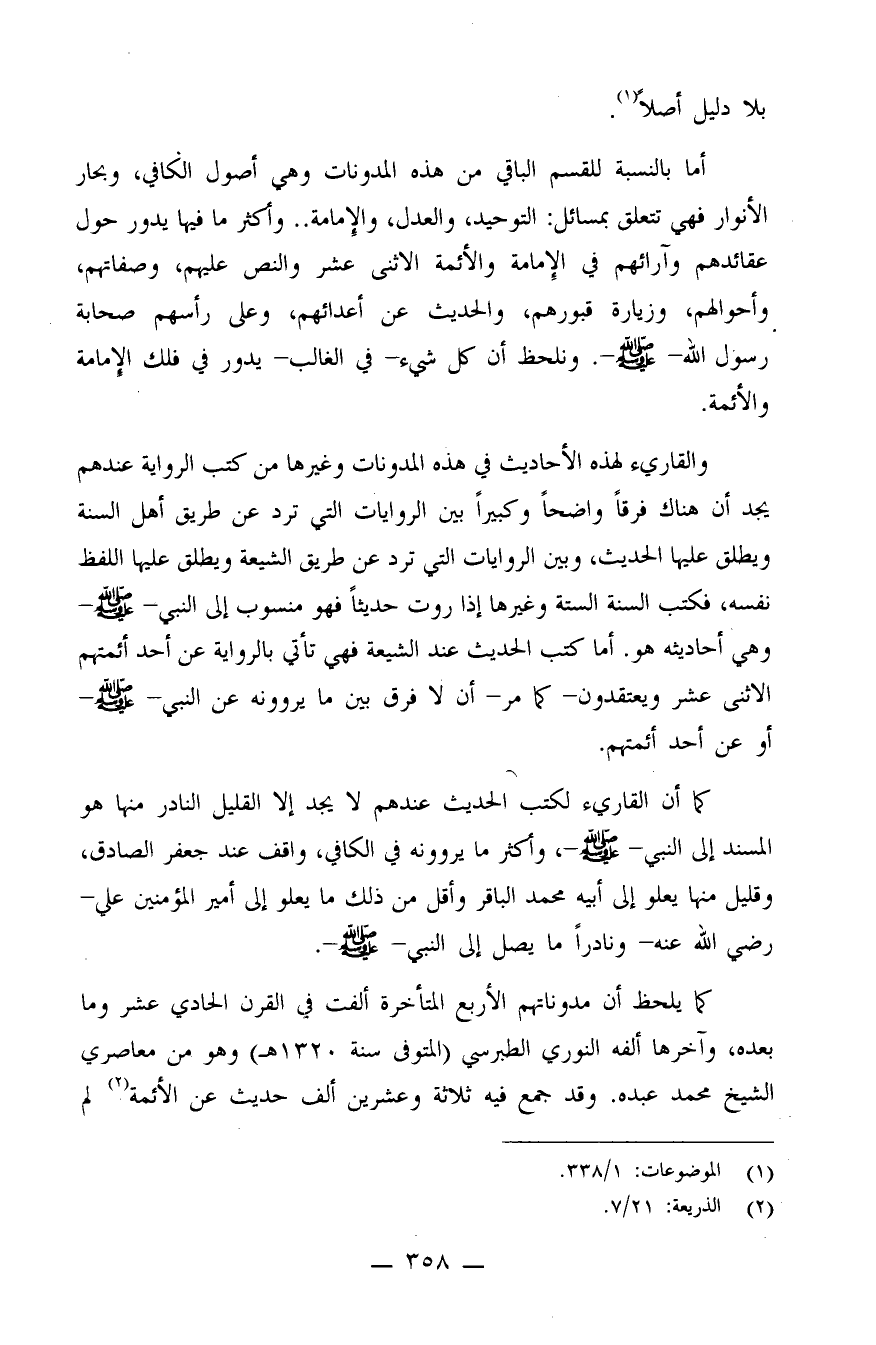 بلا دليل أصلاً(١).
أما بالنسبة للقسم الباقي من هذه المدونات وهي أصول الكافي، وبحار
الأنوار فهي تتعلق بمسائل: التوحيد، والعدل، والإمامة.. وأكثر ما فيها يدور حول
عقائدهم وآرائهم في الإمامة والأئمة الاثنى عشر والنص عليهم، وصفاتهم،
وأحوالهم، وزيارة قبورهم، والحديث عن أعدائهم، وعلى رأسهم صحابة
رسول الله– ﷺ–. ونلحظ أن كل شيء– في الغالب– يدور في فلك الإمامة
والأئمة.
والقاريء لهذه الأحاديث في هذه المدونات وغيرها من كتب الرواية عندهم
يجد أن هناك فرقاً واضحاً وكبيراً بين الروايات التي ترد عن طريق أهل السنة
ويطلق عليها الحديث، وبين الروايات التي ترد عن طريق الشيعة ويطلق عليها اللفظ
نفسه، فكتب السنة الستة وغيرها إذا روت حديثاً فهو منسوب إلى النبي– ﷺ–
وهي أحاديثه هو. أما كتب الحديث عند الشيعة فهي تأتي بالرواية عن أحد أئمتهم
الاثنى عشر ويعتقدون– كما مر– أن لا فرق بين ما يروونه عن النبي– ﷺ–
أو عن أحد أئمتهم.
كما أن القاريء لكتب الحديث عندهم لا يجد إلا القليل النادر منها هو
المسند إلى النبي– ﷺ–، وأكثر ما يروونه في الكافي، واقف عند جعفر الصادق،
وقليل منها يعلو إلى أبيه محمد الباقر وأقل من ذلك ما يعلو إلى أمير المؤمنين علي–
رضي الله عنه– ونادراً ما يصل إلى النبي– ﷺ–.
كما يلحظ أن مدوناتهم الأربع المتأخرة ألفت في القرن الحادي عشر وما
بعده، وآخرها ألفه النوري الطبرسي (المتوفى سنة ١٣٢٠هـ) وهو من معاصري
الشيخ محمد عبده. وقد جمع فيه ثلاثة وعشرين ألف حديث عن الأئمة(٢) لم
(١) الموضوعات: ٣٣٨/١.
(٢) الذريعة: ٧/٢١.
— ٣٥٨ —